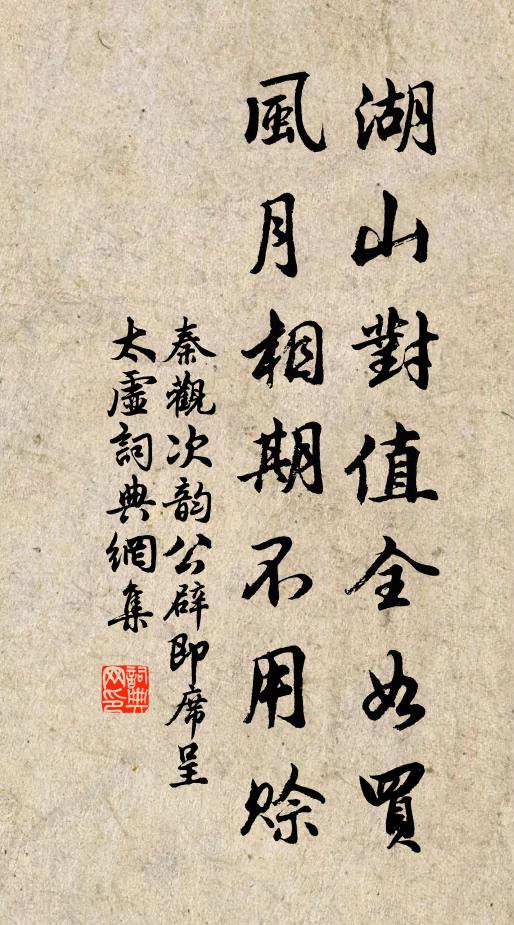 湖山對值全如買
風月相期不用賒
秦觀次韵公辟即席呈
太虛詞典網集
詞典網印